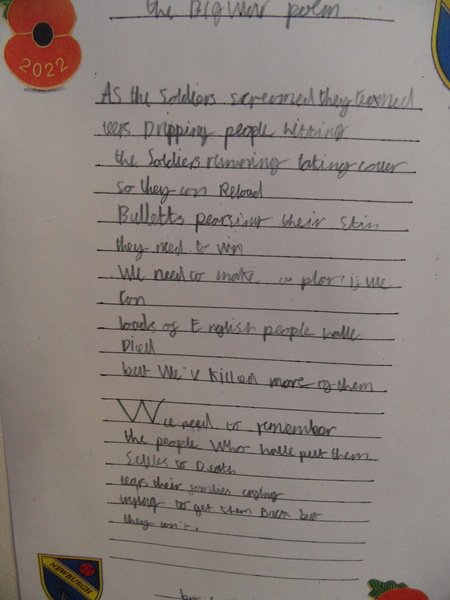 the Big War poem
2022
As the Soldiers screamed they
tears Dripping people hitting
the Soldiers running taking cover
so they can Reload
Bulletts pearsint their skin
they need to win
We need to make a plan is we
can
loads of English people have
Died
but We'v killed more of them
We need to remember
the people Who have put them
Selles to Death
tears their families
trying to get them Back but
they can't.
by
NEWBURGH